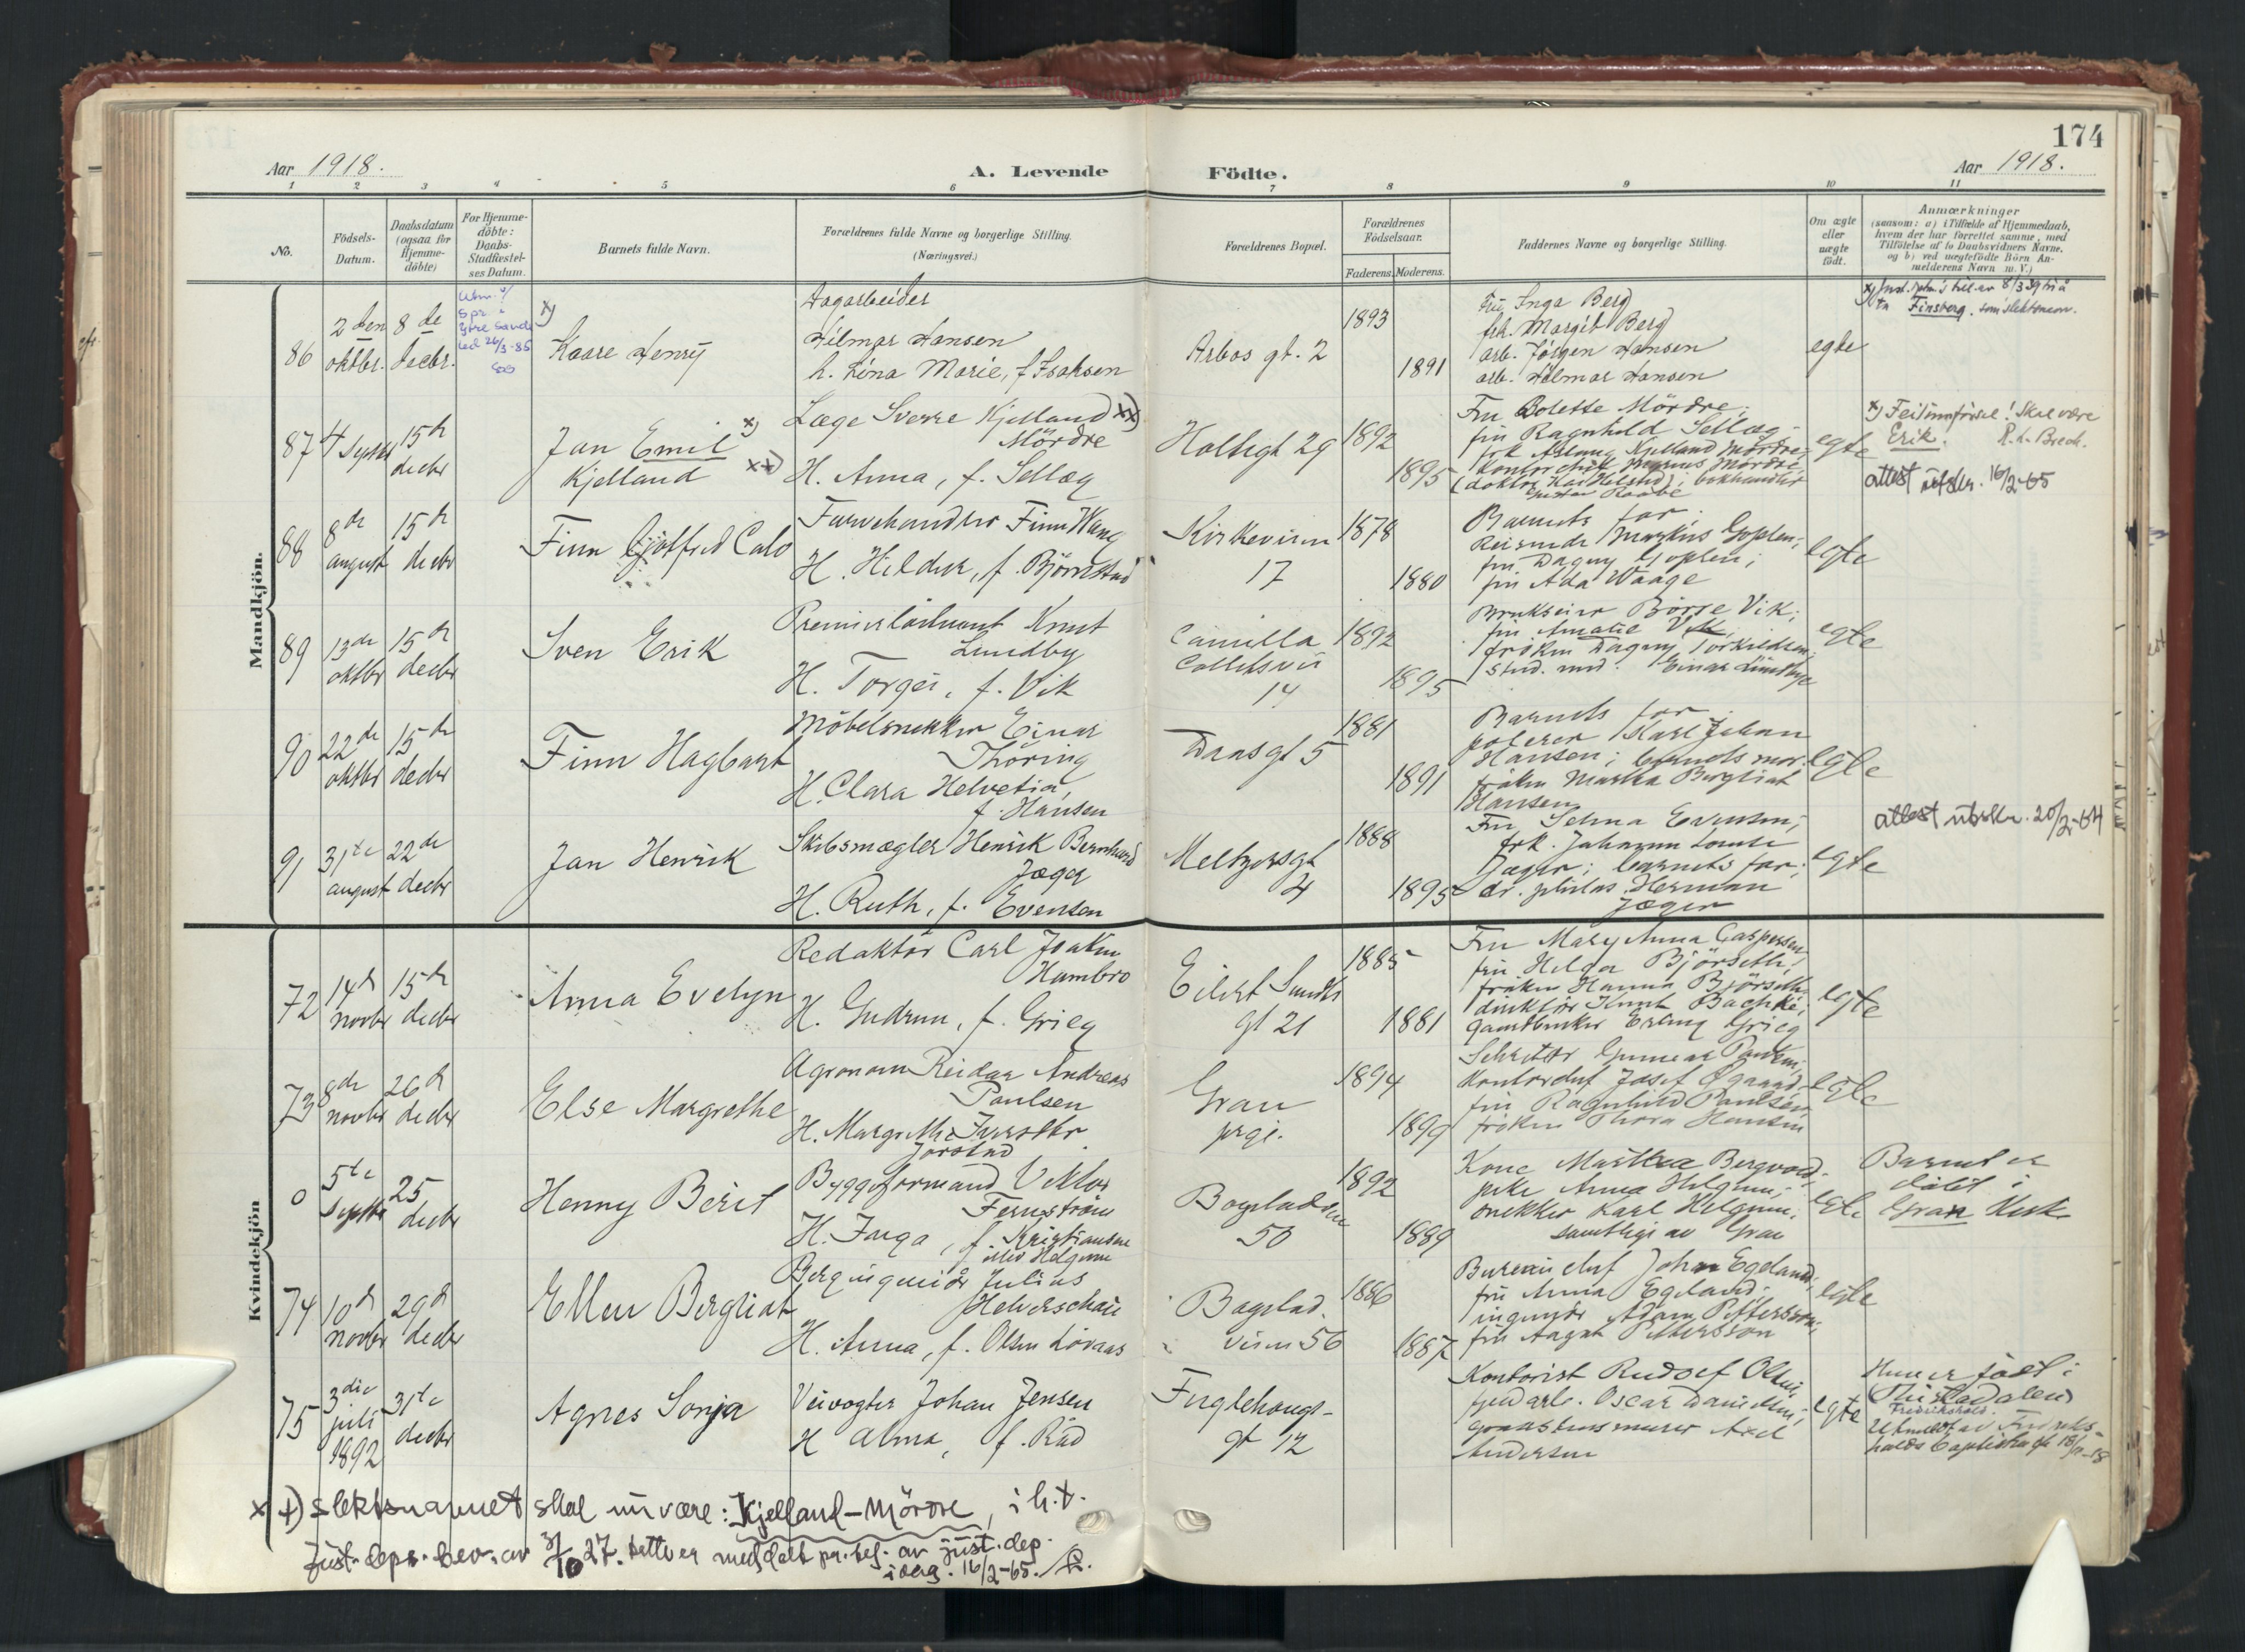 174
Aar 1918.
A. Levende Födte.
Aar 1918.
1 2 3 4 5 6 7 8 9 10 11
No.
Födsels-
Datum.
Daabsdatum
(ogsaa for
Hjemme-
döbte)
For Hjemme-
döbte:
Daabs-
Stadfæstel-
ses Datum.
Barnets fulde Navn.
Forældrenes fulde Navne og borgerlige Stilling.
(Næringsvei.)
Forældrenes Bopæl.
Forældrenes
Födselsaar.
Faderens. Moderens.
Faddernes Navne og borgerlige Stilling.
Om ægte
eller
uægte
födt.
Anmærkninger
(saasom: a) i Tilfælde af Hjemmedaab,
hvem der har forrettet samme, med
Tilföielse af to Daabsvidners Navne,
og b) ved uægtefödte Börn An-
melderens Navn m. V.)
Mandkjön.
86
2den
oktbr.
8de
decbr.
x)
Kaare Henry
Dagarbeider
Hilmar Hansen
h. Lina Marie, f. Isaksen
Arbos gt. 2
1893
1891
Fru Inga Berg
frk. Margit Berg
arb. Jörgen Hansen
arb. Hilmar Hansen
egte
Finsberg. som slektsnavn.
87
4
15de
decbr
Jan Emil x)
Kjelland xx)
Læge Sverre Kjelland xx)
Mördre
H. Anna, f. Selläg
Holtegt 29
1892
1895
Fru Bolette Mördre;
fru Ragnhild Selläg;
frk Aslaug Kjelland Mördre;
Kontorchef Magnus Mördre,
egte
x) Feilinnförsel! Skal være
Erik. R. L. Brech.
attest utskr. 16/2-65
88
8de
august
15de
decbr
Finn Gjotfred Calo
Farvehandler Finn Wang
H. Hildur, f. Björnstad
Kirkeveien
17
1878
1880
Barnets far;
Reisende Markus Goplen;
fru Dagny Goplen;
fru Ada Waage
egte
89
13de
oktbr
15de
decbr
Sven Erik
Premierlöitnant Knut
Lundby
H. Torgei, f. Vik
Camilla
Colletsvei
14
1892
1895
Brukseier Börre Vik;
fru Amalie Vik;
fröken Dagny Torkildsen;
stud. med. Einar Lundbye
egte
90
22de
oktbr
15de
decbr
Finn Hagbart
Möbelsnekker Einar
Thöring
H. Clara Helvetia,
f. Hansen
Daasgt 5
1881
1891
Barnets far;
polerer Karl Johan
Hansen; barnets mor.
fröken Martha Bergliot
Hansen
egte
91
31te
august
22de
decbr
Jan Henrik
Skibsmægler Henrik Bernhard
Jæger
H. Ruth, f. Evensen
Meltzersgt
4
1888
1895
Fru Selma Evensen;
frk. Johanna Louise
Jæger; barnets far;
dr. philos. Herman
Jæger
egte
attest utskr. 20/2-64
Kvindekjön
72
14de
novbr
15de
decbr
Anna Evelyn
Redaktör Carl Joakim
Hambro
H. Gudrun, f. Grieg
Eilert Sundts
gt 21
1885
1881
Fru Mary Anna Caspersen;
fru Helga Björseth;
fröken Hanna Björseth;
direktör Knut Bachke;
gaardbruker Erling Grieg
egte
73
8de
novbr
26de
decbr
Else Margrethe
Agronom Reidar Andreas
Paulsen
H. Margrethe
Jorstad
Gran
prgj.
1894
1899
Sekretær Gunnar Paulsen;
Kontorchef Josef Ögaard;
fru Ragnhild Paulsen
fröken Thora Hansen
egte
0
5te
25
decbr
Henny Berit
Byggeformand Viktor
Fernström
H. Inga, f. Kristiansen
Bogstadveien
50
1892
1889
Kone Martha Bergvad;
pike Anna Helgum;
snekker Karl Helgum;
samtlige av Gran
egte
Barnet er
döbt i
Gran Kirke
74
10de
novbr
29de
decbr
Ellen Bergliot
Bergingeniör Julius
Helverschou
H. Anna, f. Olsen Lövaas
Bogstad.
veien 56
1886
1887
Bureauchef Johan Egeland;
fru Anna Egeland;
ingeniör Adam Pettersson;
fru Aagot Pettersson
egte
75
3die
juli
1892
31te
decbr
Agnes Sonja
Veivogter Johan Jensen
H Alma, f. Råd
Fuglehaugs-
gt 12
Kontorist Rudolf Olsen;
fundarb. Oscar Danielsen;
graastensmurer Axel
Andersen
egte
Hun er född i
Tistedalen
Fredrikshald.
Utmeldt av Fredriks-
halds Baptistmenighet 18/11-18
x+) slektsnavnet skal nu være: Kjelland-Mördre, i h.t.
just. deps. bev. av 3/10 27. Dette er meddelt pr. tel. av just. dep.
idag. 16/2-65.